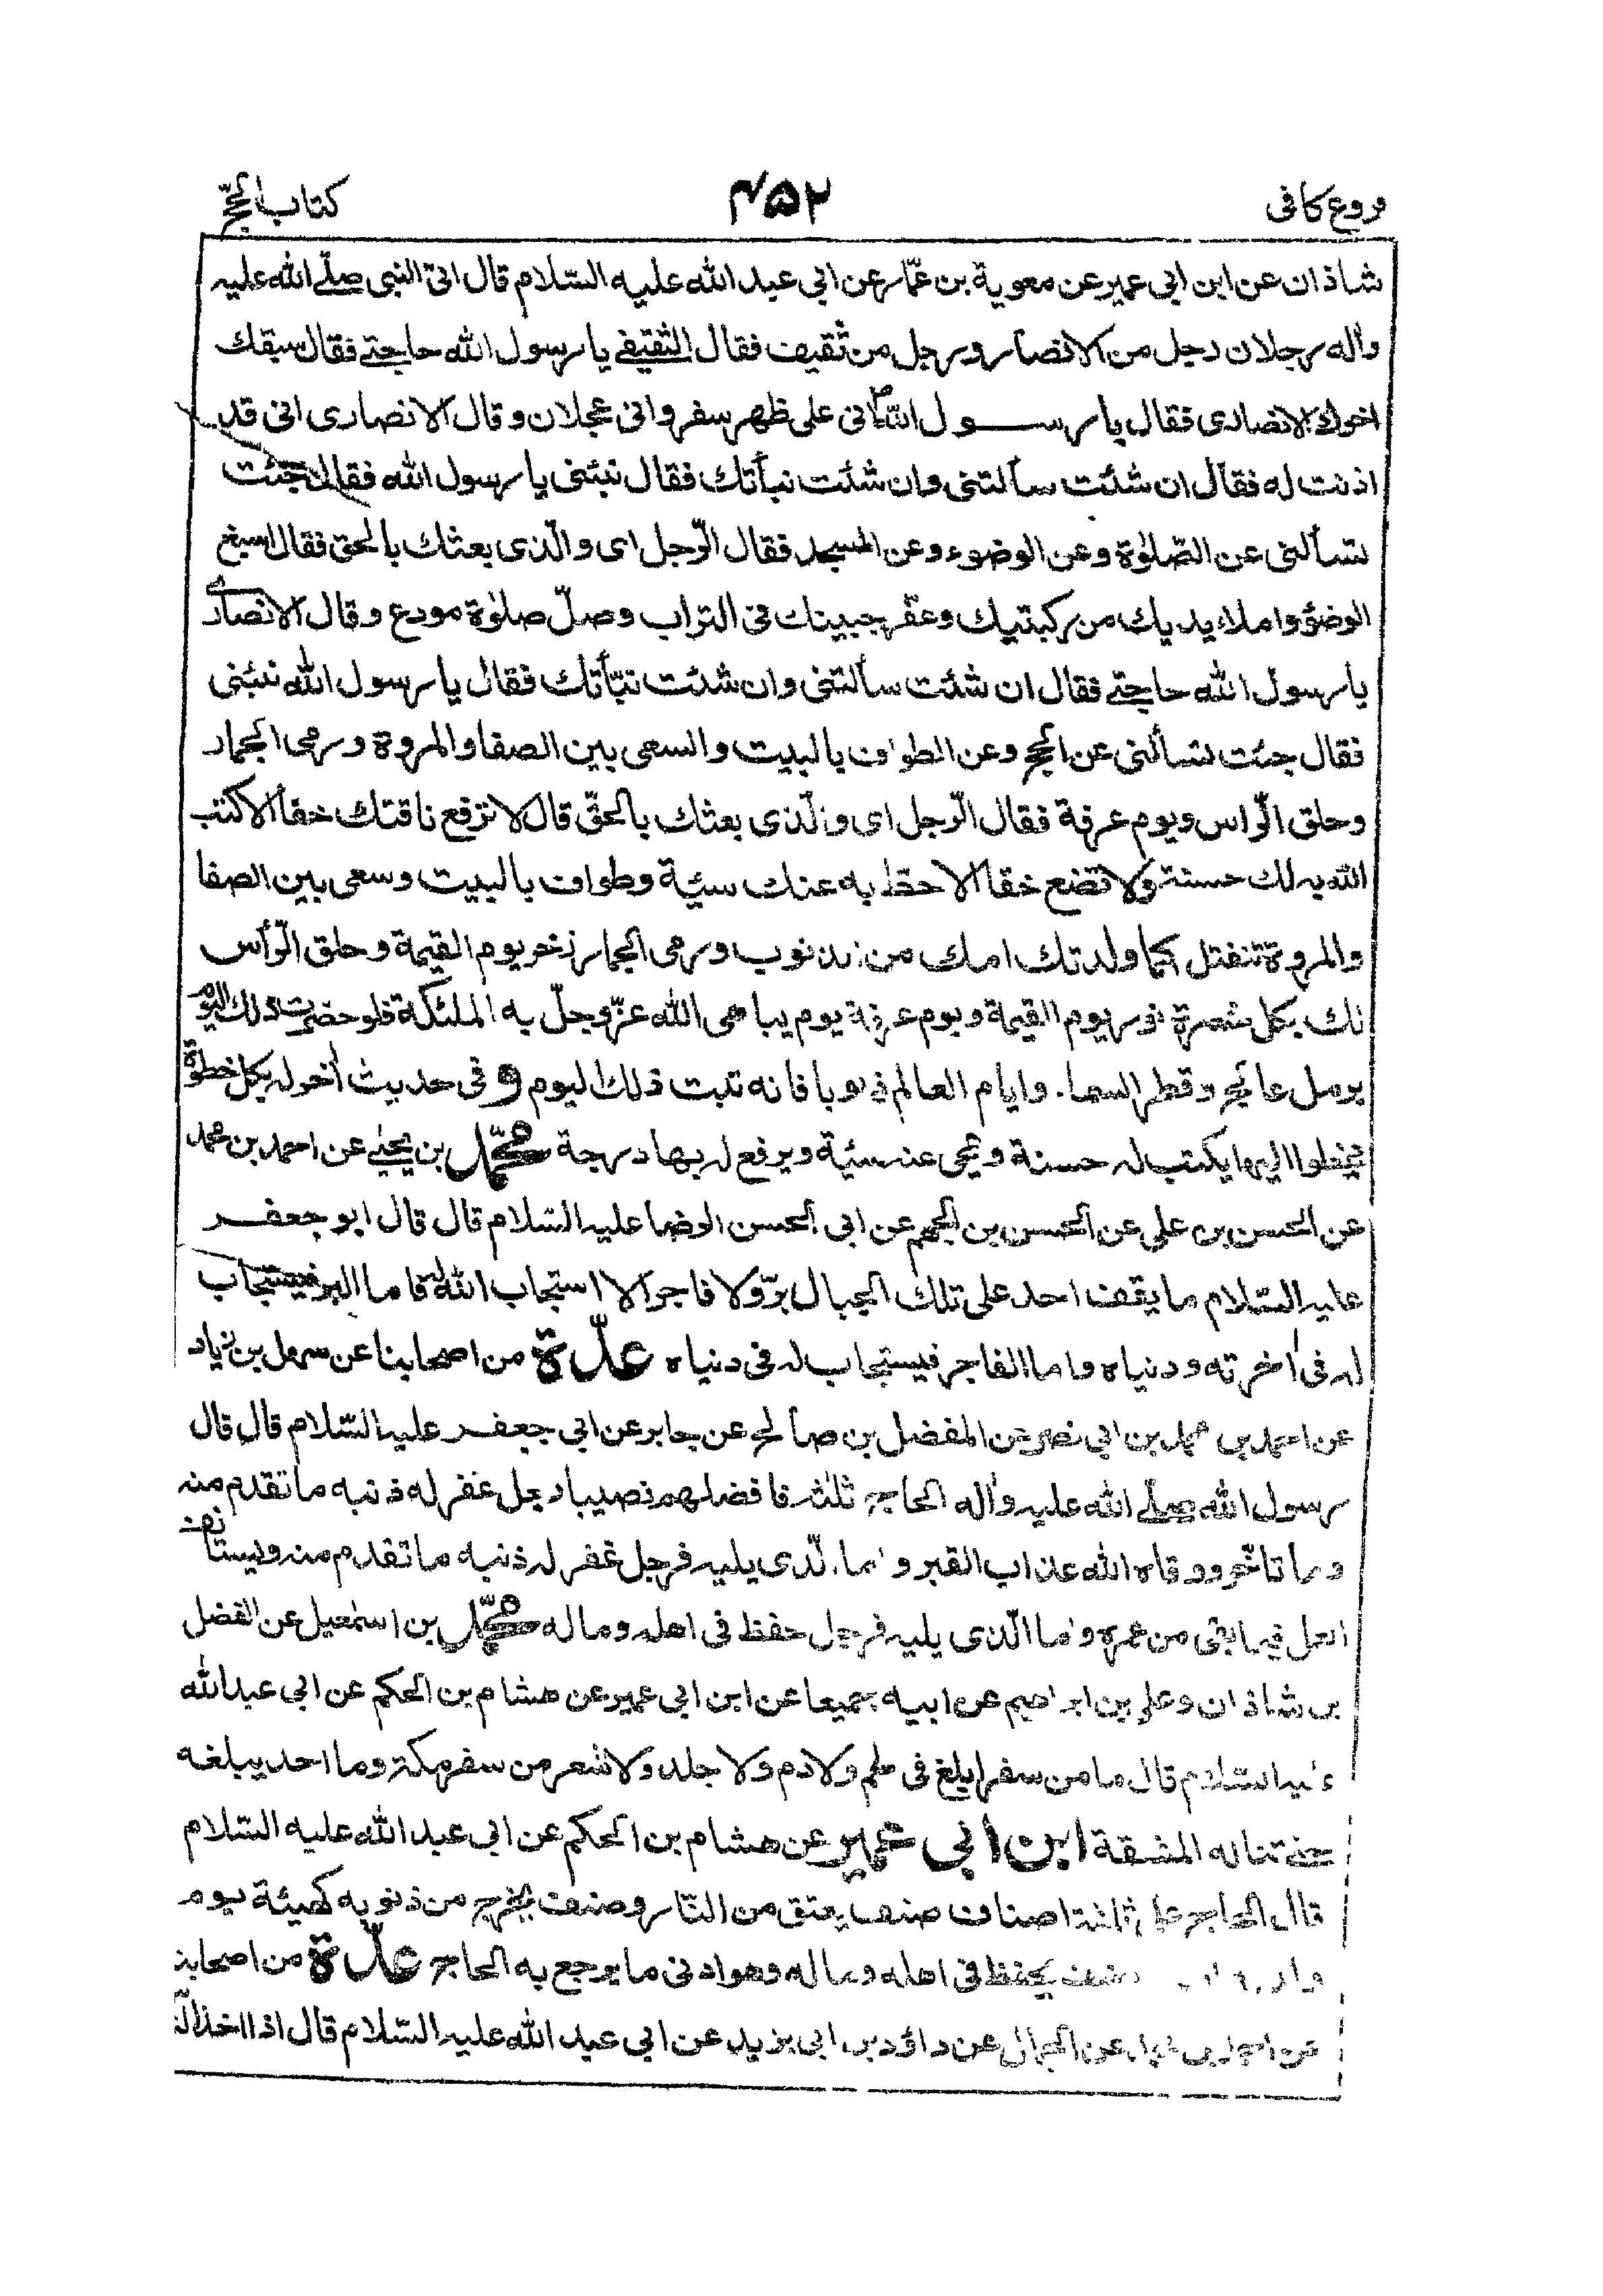 فروع كافى ۴۵۲ كتاب الحجّ
شاذان عن ابن ابي عمير عن معوية بن عمّار عن ابي عبد الله عليه السّلام قال اتى النبي صلّى الله عليه
واٰله رجلان رجل من الانصار ورجل من ثقيف فقال الثقيفى يا رسول الله حاجتى فقال سبقك
اخوك الانصارى فقال يا رسول الله انى على ظهر سفر وانى عجلان وقال الانصارى انى قد
اذنت له فقال ان شئت سألتنى وان شئت نبأتك فقال نبئنى يا رسول الله فقال جئت
تسألنى عن الصّلوٰة وعن الوضوء وعن المسجد فقال الرّجل اى والّذى بعثك بالحق فقال اسبغ
الوضوٴ واملاء يديك من ركبتيك وعفّر جبينك فى التراب وصلّ صلوٰة مودع وقال الانصارى
يا رسول الله حاجتى فقال ان شئت سألتنى وان شئت نبّأتك فقال يا رسول الله نبئنى
فقال جئت تسألنى عن الحج وعن الطواف بالبيت والسعى بين الصفا والمروة ورمى الجمار
وحلق الرّاس ويوم عرفة فقال الرّجل اى والّذى بعثك بالحقّ قال لا ترفع ناقتك خفا الا كتب
الله به لك حسنة ولا تضع خفا الا حط به عنك سيئة وطواف بالبيت وسعى بين الصفا
والمروة تنفتل كما ولدتك امك من الذنوب ورمى الجمار ذخر يوم القيمة وحلق الرّأس
لك بكل شعرة نور يوم القيمة ويوم عرفة يوم يباهى الله عزّ وجلّ به الملئكة فلو حضرت ذلك اليوم
برمل عالج وقطر السماء وايام العالم ذنوبا فانه تبت ذلك اليوم و فى حديث اٰخر له بكل خطوة
يخطوا اليها يكتب له حسنة ويمحى عنه سيئة ويرفع له بها درجة محمّد بن يحيى عن احمد بن محمد
عن الحسن بن علي عن الحسن بن الجهم عن ابى الحسن الرضا عليه السّلام قال قال ابو جعفر
عليه السّلام ما يقف احد على تلك الجبال برّ ولا فاجر الا استجاب الله له فاما البر فيستجاب
له فى اٰخرته ودنياه واما الفاجر فيستجاب له فى دنياه عدّة من اصحابنا عن سهل بن زياد
عن احمد بن محمد بن ابي نصر عن المفضل بن صالح عن جابر عن ابي جعفر عليه السّلام قال قال
رسول الله صلّى الله عليه واٰله الحاج ثلثة فافضلهم نصيبا رجل غفر له ذنبه ما تقدم منه
وما تاخّر ووقاه الله عذاب القبر واما الّذى يليه فرجل غفر له ذنبه ما تقدم منه ويستأنف
العمل فيما بقى من عمره واما الّذى يليه فرجل حفظ فى اهله وماله محمّد بن اسمٰعيل عن الفضل
بن شاذان وعلي بن ابراهيم عن ابيه جميعا عن ابن ابي عمير عن هشام بن الحكم عن ابي عبد الله
عليه السّلام قال ما من سفر ابلغ فى لحم ولا دم ولا جلد ولا شعر من سفر مكة وما احد يبلغه
حتى تناله المشقة ابن ابي عمير عن هشام بن الحكم عن ابي عبد الله عليه السّلام
قال الحاج على ثلثة اصناف صنف يعتق من النّار وصنف يخرج من ذنوبه كهيئة يوم
وصنف يحفظ فى اهله وماله وهو ادنى ما يرجع به الحاج عدّة من اصحابنا
عن احمد بن محمد عن الحجال عن داؤد بن ابى يزيد عن ابي عبد الله عليه السّلام قال اذا اخذ